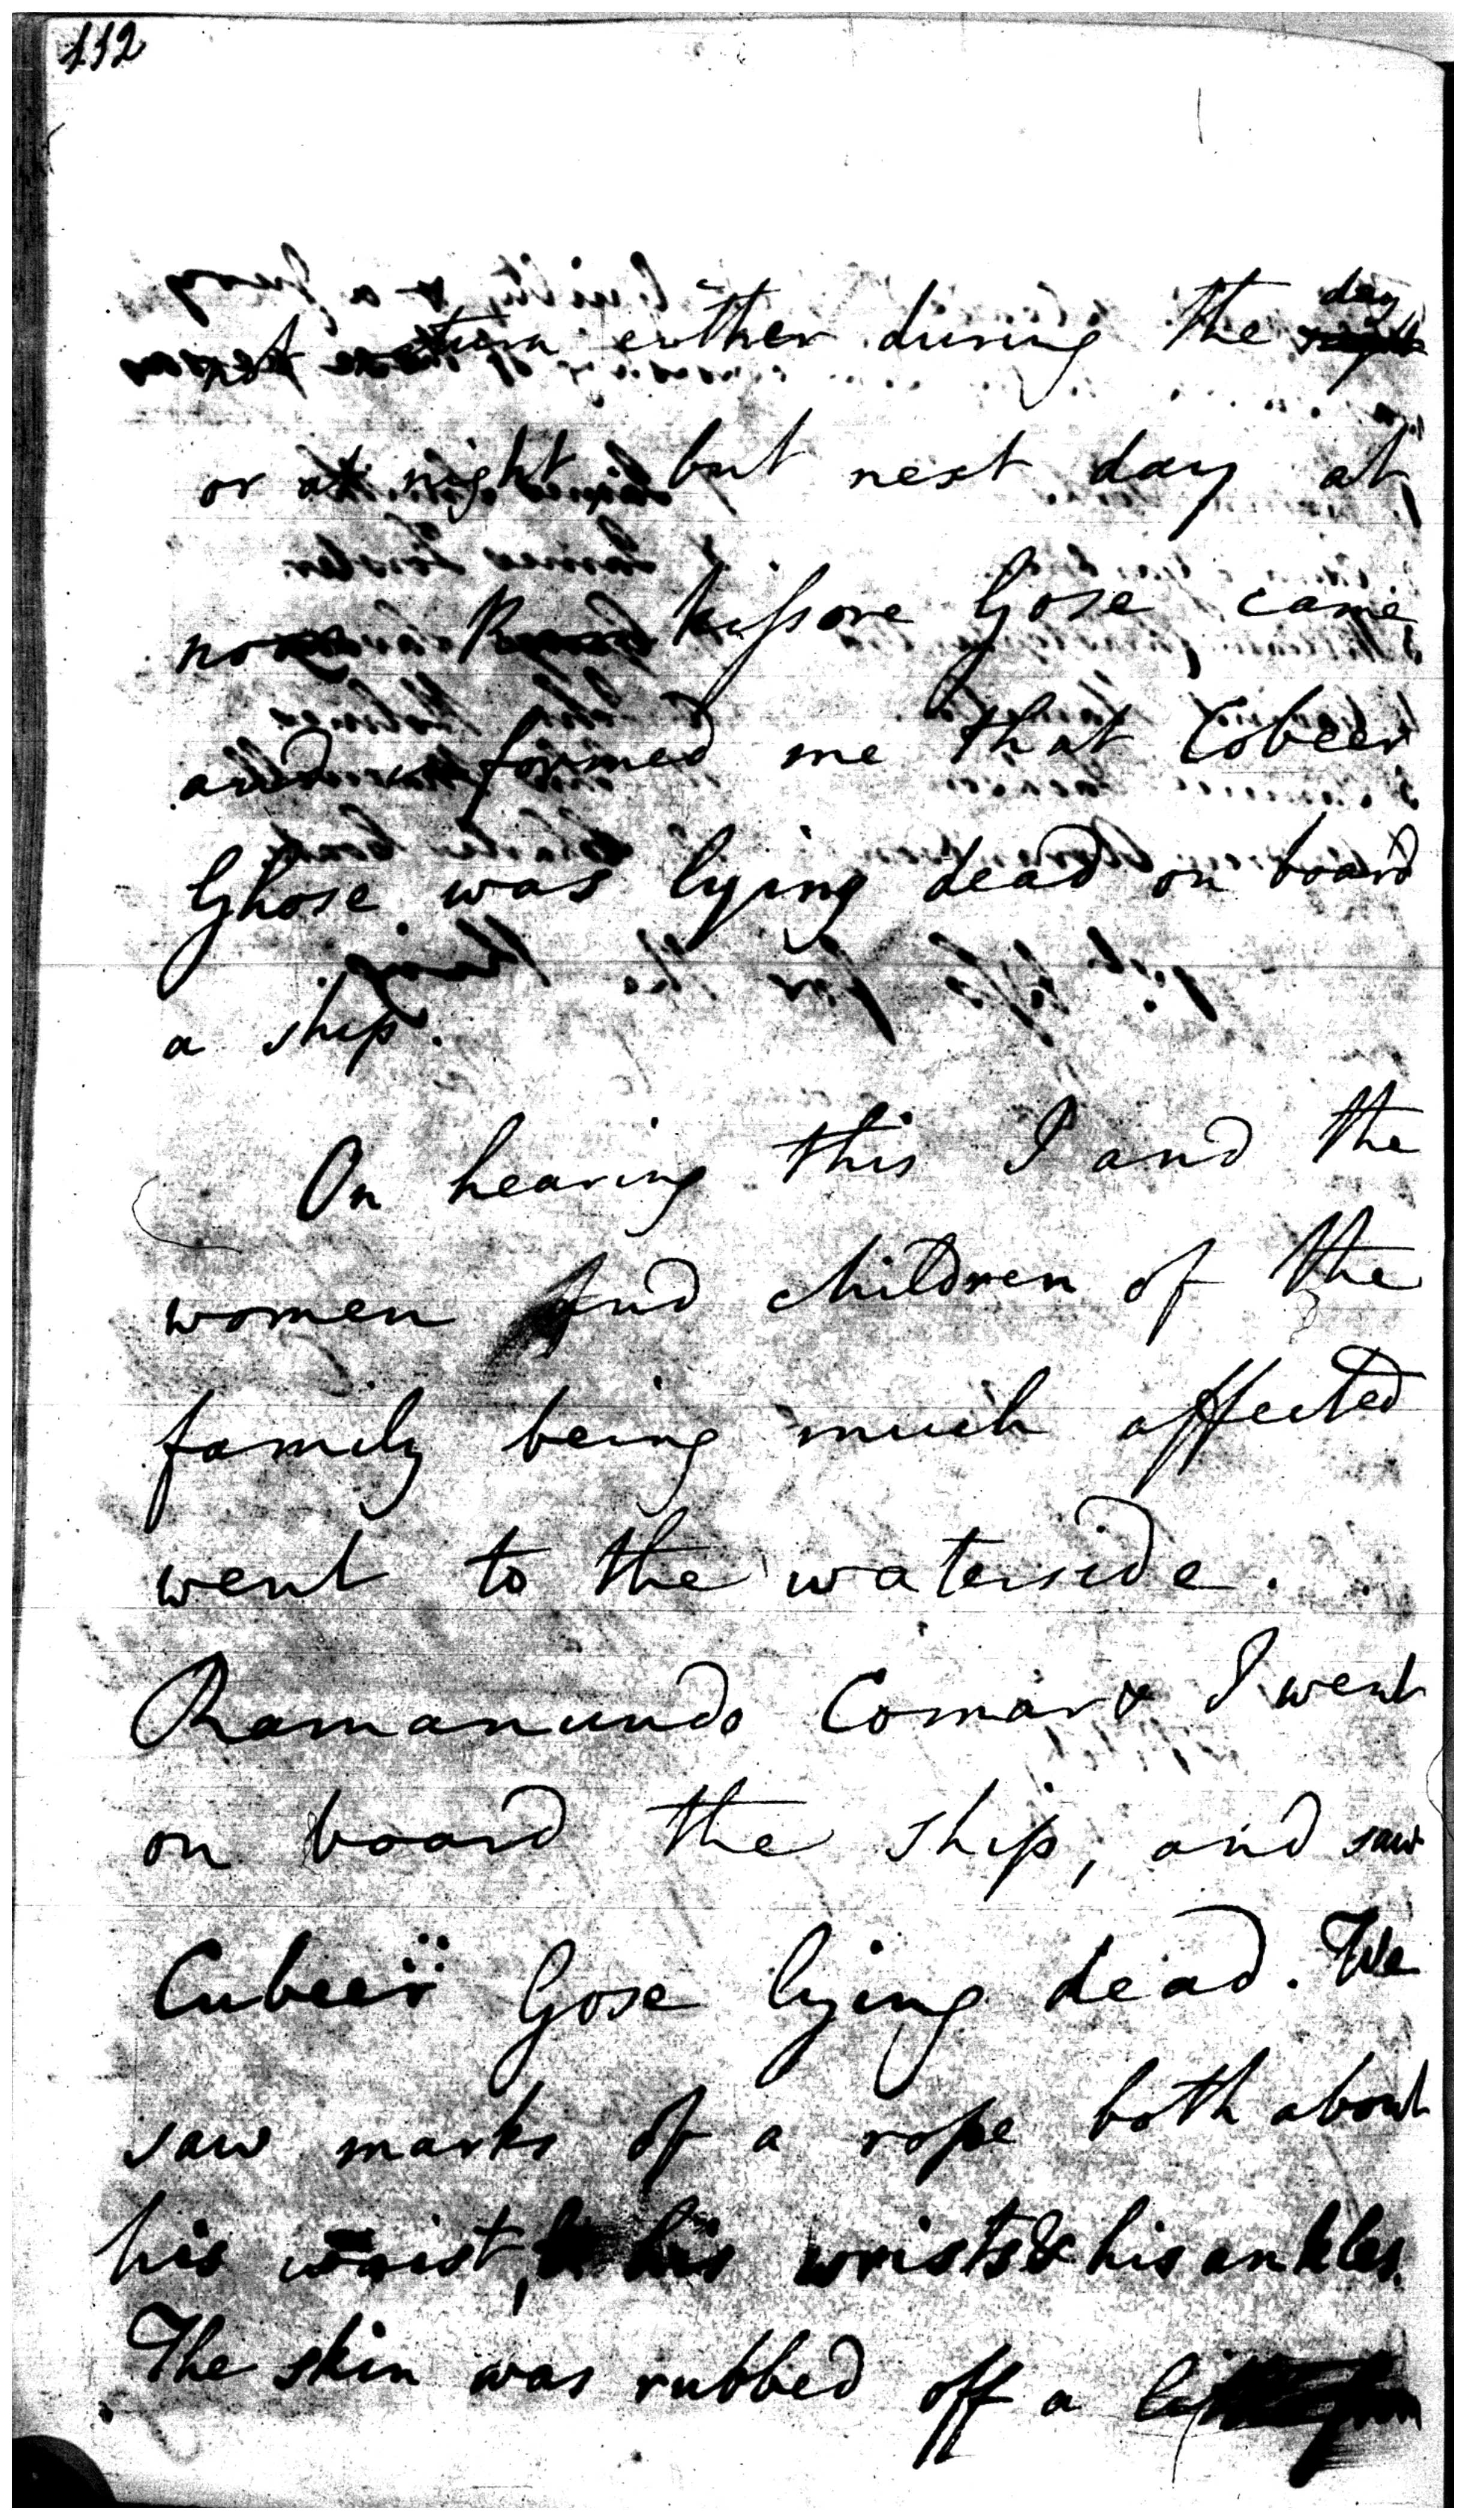 112
not return either during the day
or at night but next day at
noon Ram Kissore Gose came
and informed me that Cobeer
Ghose was lying dead on board
a ship.
On hearing this I and the
women and children of the
family being much affected
went to the waterside.
Ramanundo Comar & I went
on board the ship, and saw
Cubeer Gose lying dead. We
saw marks of a rope both about
his waist, his wrists & his ankles.
The skin was rubbed off a